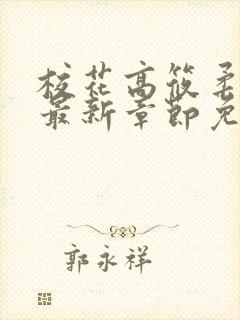 校花高筱柔
最新章節免
郭永祥